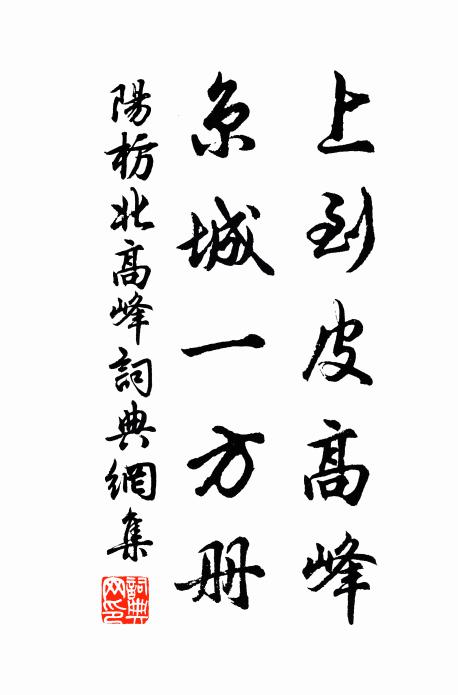 上到皮高峰
京城一方册
陽枋北高峰詞典網集
詞典網印